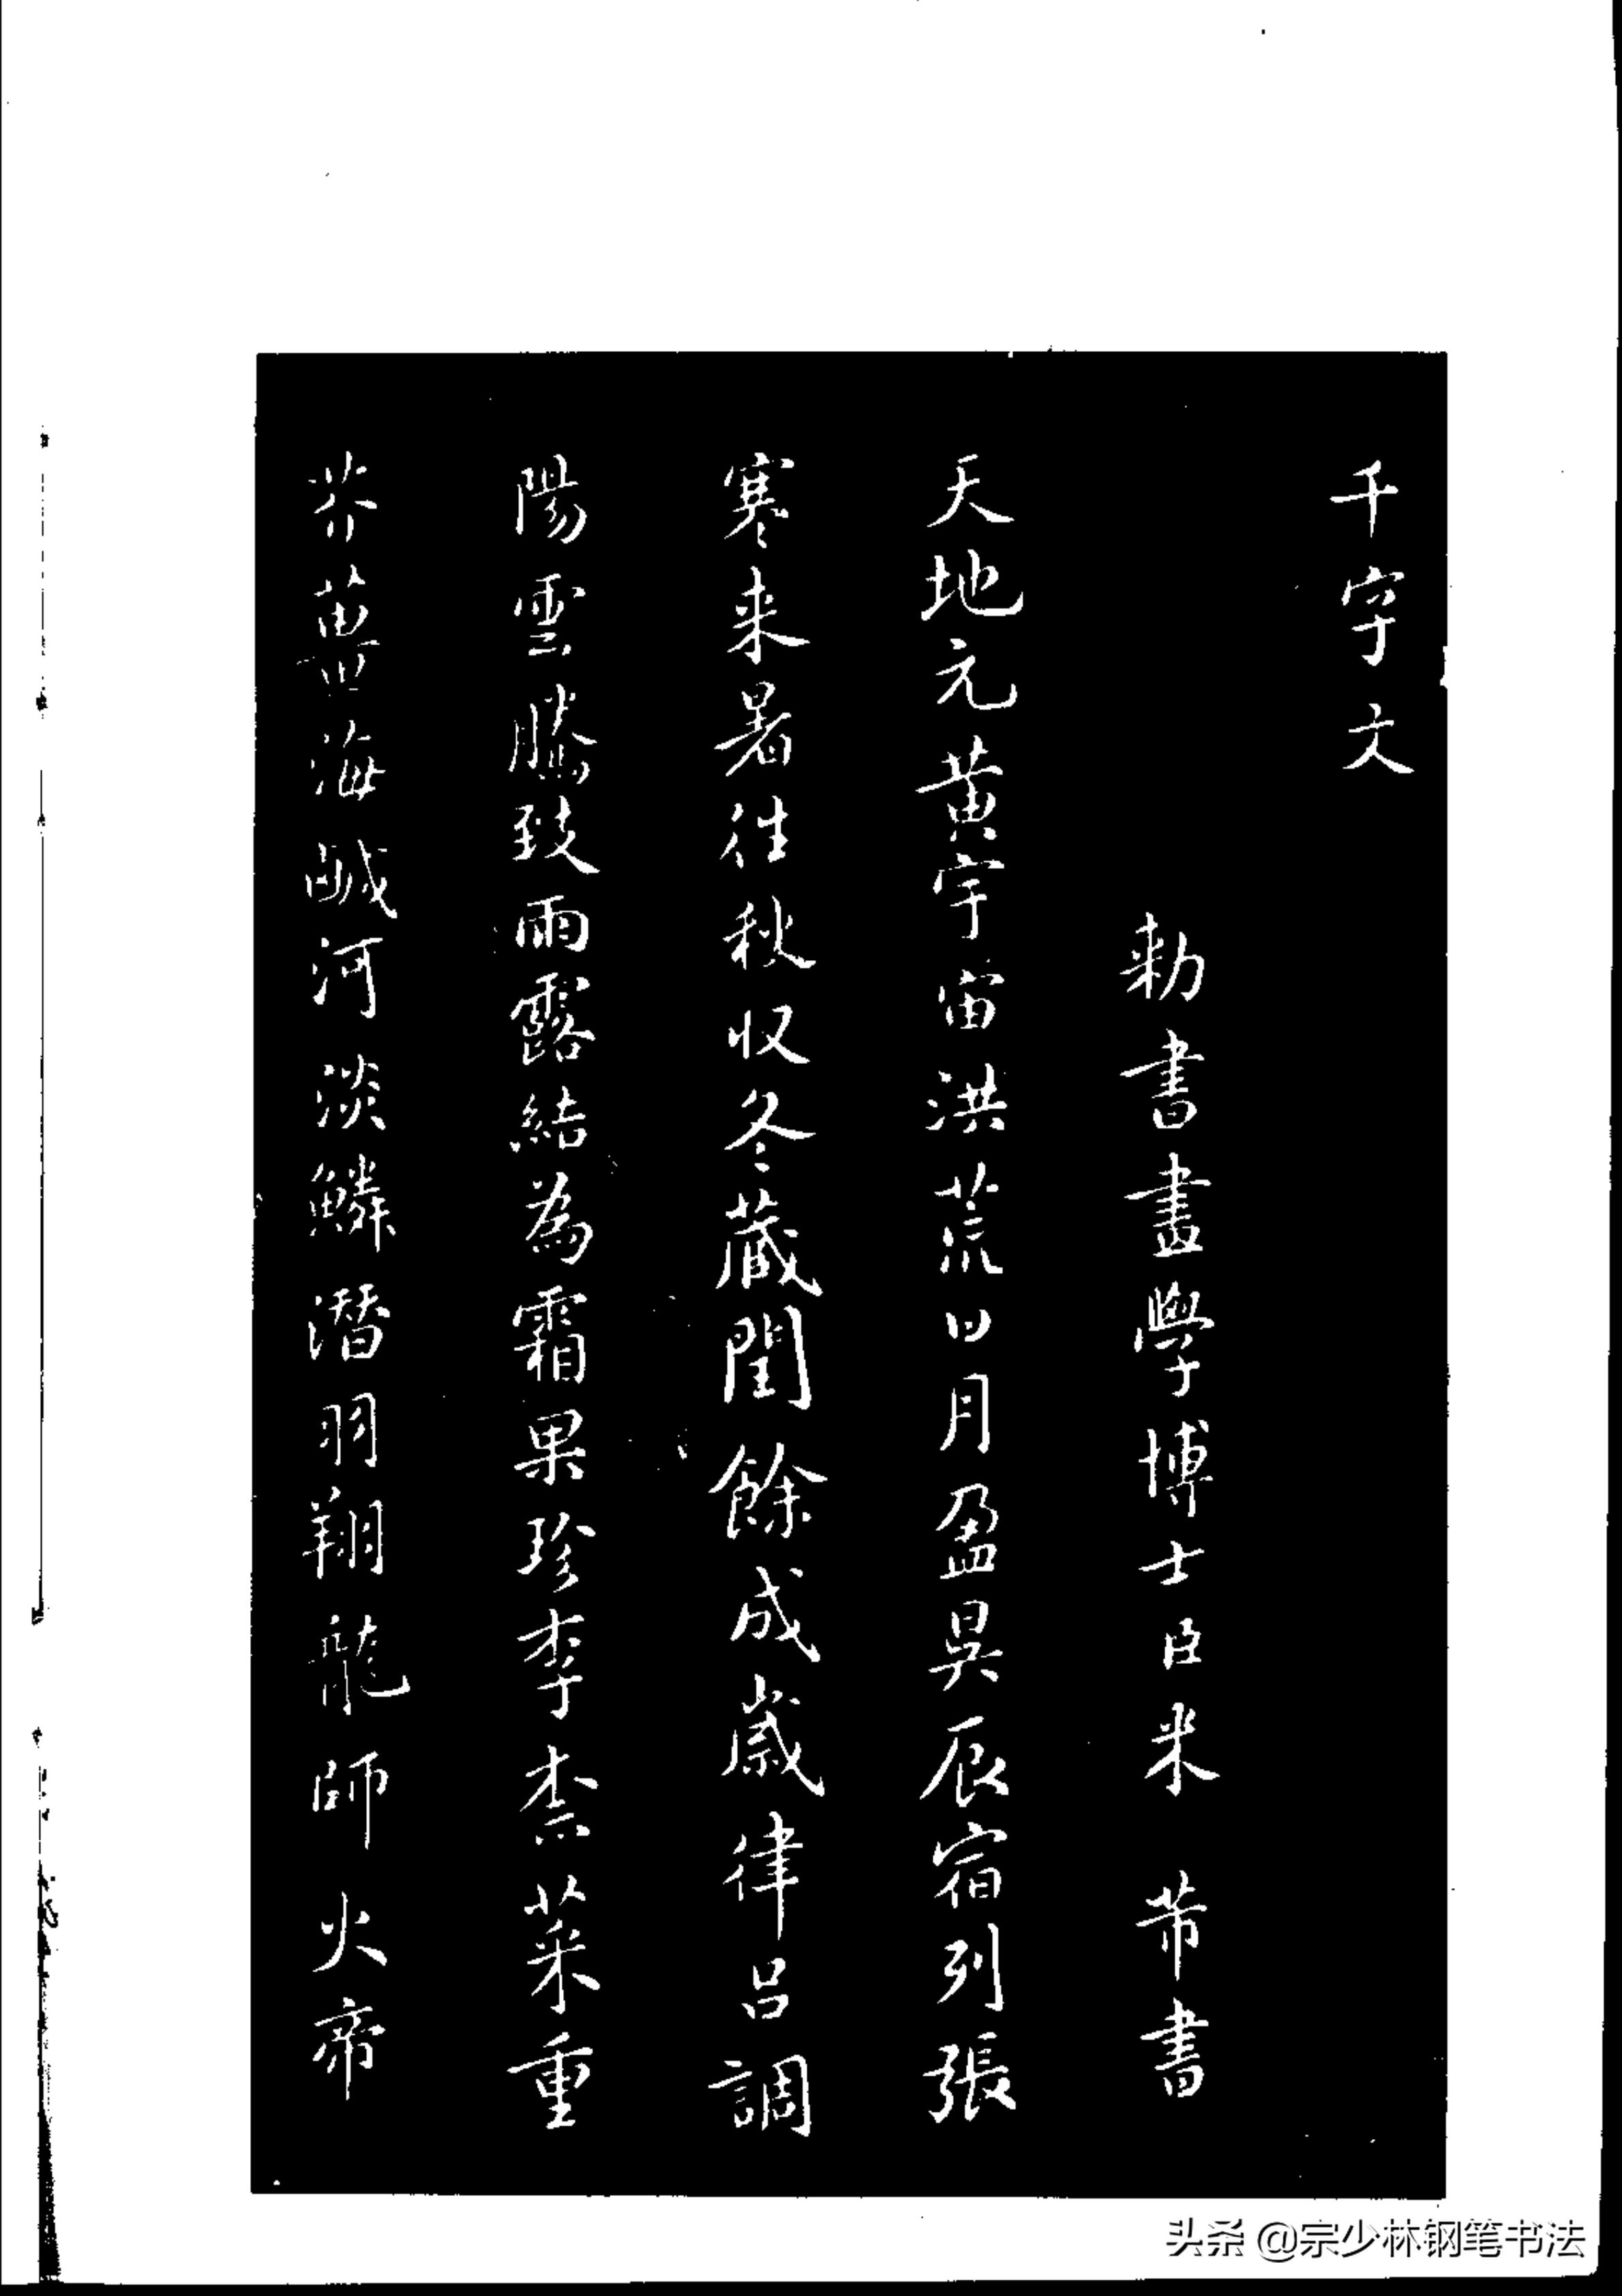 千字文
勅書畫學博士臣米芾書
天地元黃宇宙洪荒日月盈昃辰宿列張
寒来暑往秋収冬藏閏餘成歲律呂調
陽雲騰致雨露結為霜果珍李柰菜重
芥薑海鹹河淡鱗潛羽翔龍師火帝
头条 @宗少林钢笔书法